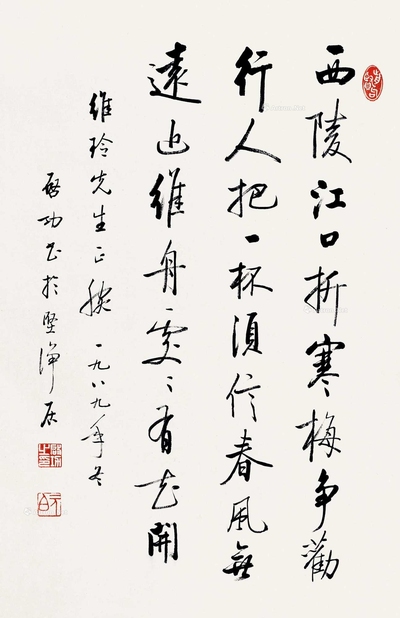 西陵江口折寒梅争勸
行人把一杯須信春風無
遠近維舟處〻有花開
維玲先生正腕 一九八九年冬
啟功書於堅淨居